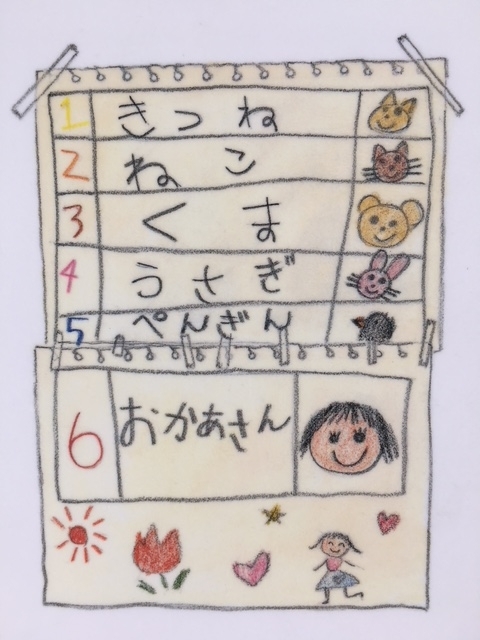 1 きつね
2 ねこ
3 くま
4 うさぎ
5 ぺんぎん
6 おかあさん